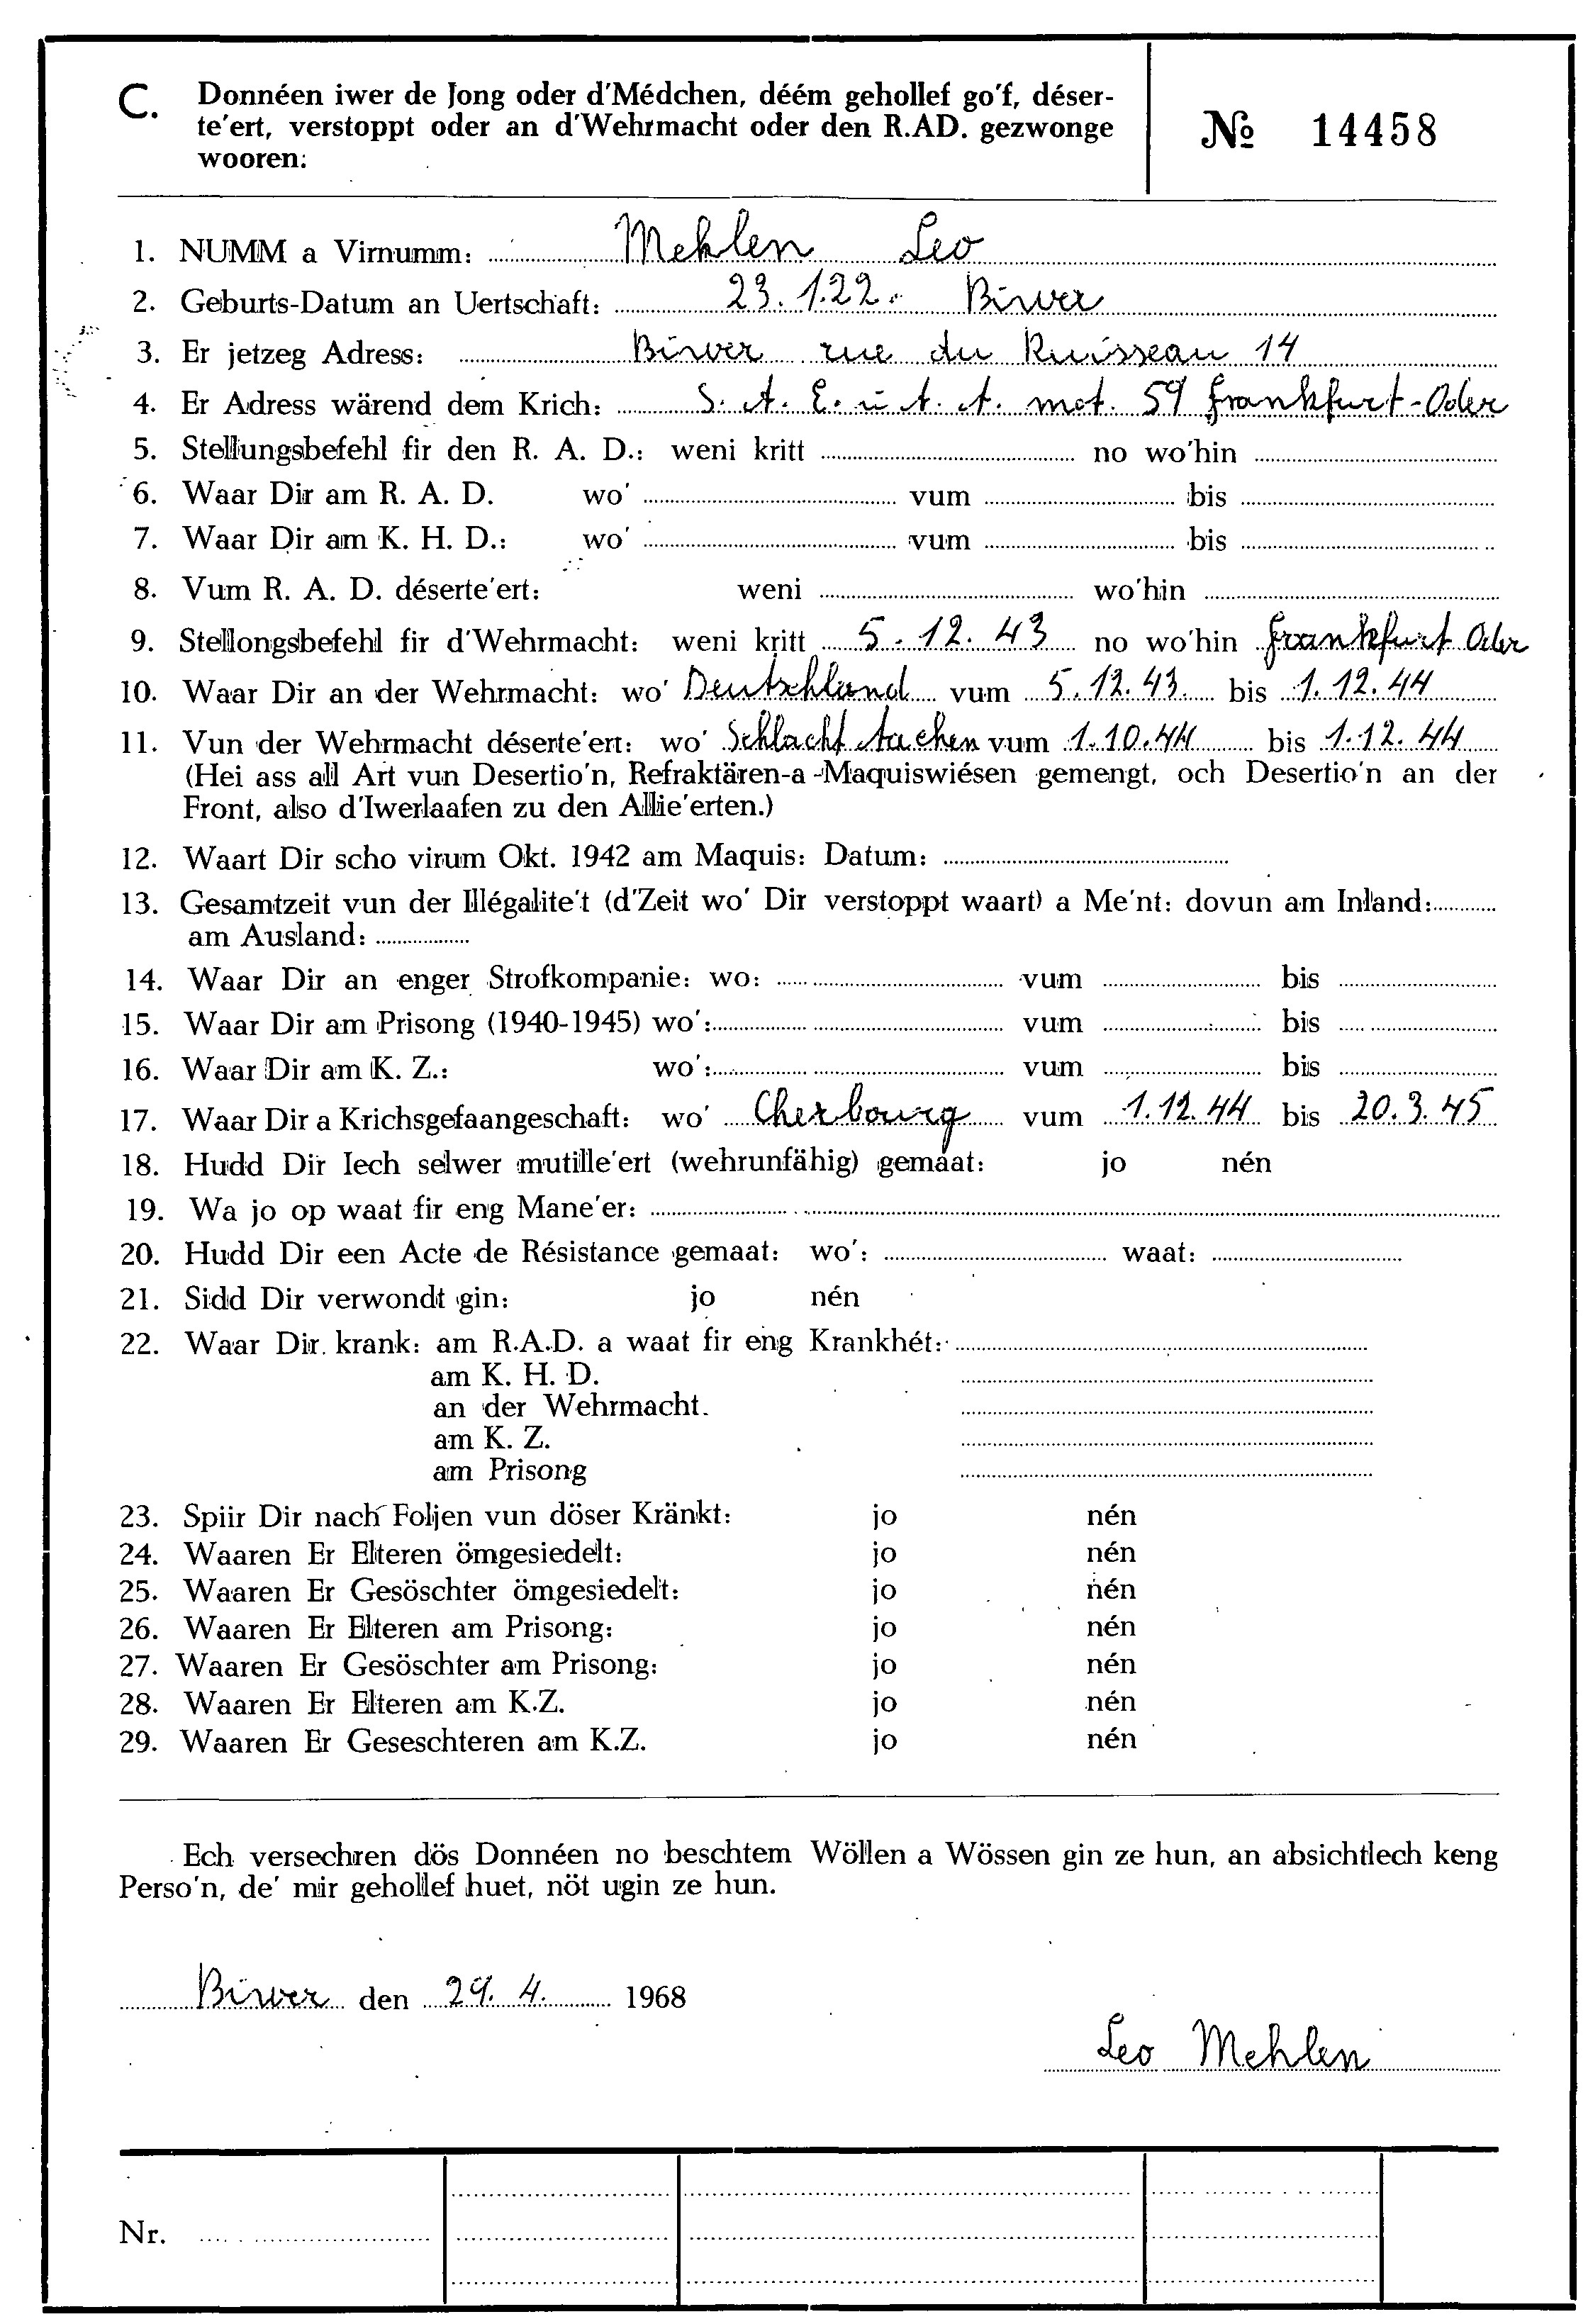 C. Donnéen iwer de Jong oder d'Médchen, déém gehollef go'f, déser-
te'ert, verstoppt oder an d'Wehrmacht oder den R.AD. gezwonge
wooren:
№ 14458
1. NUMM a Virnumm: Mehlen Leo
2. Geburts-Datum an Uertschaft: 23.1.22. Biwer
3. Er jetzeg Adress: Biwer rue du Ruisseau 14
4. Er Adress wärend dem Krich: S. A. E. u A. A. mot. 59 Frankfurt-Oder
5. Stellungsbefehl fir den R. A. D.: weni kritt no wo'hin
6. Waar Dir am R. A. D. wo' vum bis
7. Waar Dir am K. H. D.: wo' vum bis
8. Vum R. A. D. déserte'ert: weni wo'hin
9. Stellongsbefehl fir d'Wehrmacht: weni kritt 5.12.43 no wo'hin Frankfurt Oder
10. Waar Dir an der Wehrmacht: wo' Deutschland vum 5.12.43. bis 1.12.44
11. Vun der Wehrmacht déserte'ert: wo' Schlacht Aachen vum 1.10.44 bis 1.12.44
(Hei ass all Art vun Desertio'n, Refraktären-a-Maquiswiésen gemengt, och Desertio'n an der
Front, also d'Iwerlaafen zu den Allie'erten.)
12. Waart Dir scho virum Okt. 1942 am Maquis: Datum:
13. Gesamtzeit vun der Illégalite't (d'Zeit wo' Dir verstoppt waart) a Me'nt: dovun am Inland:
am Ausland:
14. Waar Dir an enger Strofkompanie: wo: vum bis
15. Waar Dir am Prisong (1940-1945) wo': vum bis
16. Waar Dir am K. Z.: wo': vum bis
17. Waar Dir a Krichsgefaangeschaft: wo' Cherbourg vum 1.12.44 bis 20.3.45
18. Hudd Dir Iech selwer mutille'ert (wehrunfähig) gemaat: jo nén
19. Wa jo op waat fir eng Mane'er:
20. Hudd Dir een Acte de Résistance gemaat: wo': waat:
21. Sidd Dir verwondt gin: jo nén
22. Waar Dir krank: am R.A.D. a waat fir eng Krankhét:
am K. H. D.
an der Wehrmacht.
am K. Z.
am Prisong
23. Spiir Dir nach Foljen vun döser Kränkt: jo nén
24. Waaren Er Elteren ömgesiedelt: jo nén
25. Waaren Er Gesöschter ömgesiedelt: jo nén
26. Waaren Er Elteren am Prisong: jo nén
27. Waaren Er Gesöschter am Prisong: jo nén
28. Waaren Er Elteren am K.Z. jo nén
29. Waaren Er Geseschteren am K.Z. jo nén
Ech versechren dös Donnéen no beschtem Wöllen a Wössen gin ze hun, an absichtlech keng
Perso'n, de' mir gehollef huet, nöt ugin ze hun.
Biwer den 29. 4. 1968
Leo Mehlen
Nr.